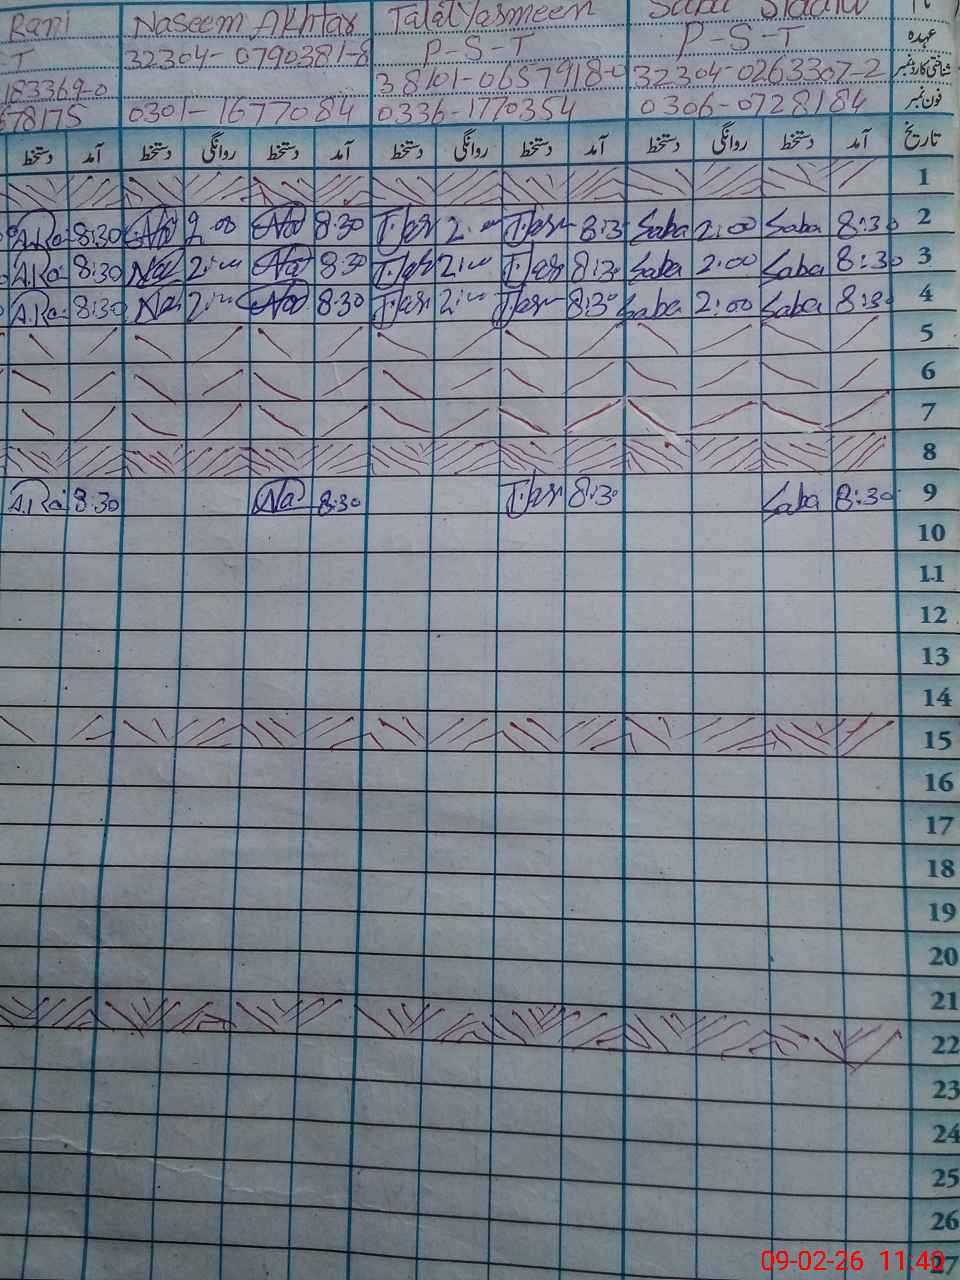 Rani Naseem Akhtar Talat Yasmeen Saba
T 32304-0790381-8 P-S-T P-S-T عہدہ
183369-0 38101-0657918-0 32304-0263307-2 شناختی کارڈ نمبر
678175 0301-1677084 0336-1770354 0306-0728184 فون نمبر
دستخط آمد دستخط روانگی دستخط آمد دستخط روانگی دستخط آمد دستخط روانگی دستخط آمد تاریخ
1
A.Ra 8:30 Na 2:00 Na 8:30 T.Yas 2:00 T.Yas 8:30 Saba 2:00 Saba 8:30 2
A.Ra 8:30 Na 2:00 Na 8:30 T.Yas 2:00 T.Yas 8:30 Saba 2:00 Saba 8:30 3
A.Ra 8:30 Na 2:00 Na 8:30 T.Yas 2:00 T.Yas 8:30 Saba 2:00 Saba 8:30 4
5
6
7
8
A.Ra 8:30 Na 8:30 T.Yas 8:30 Saba 8:30 9
10
11
12
13
14
15
16
17
18
19
20
21
22
23
24
25
26
27
09-02-26 11:40